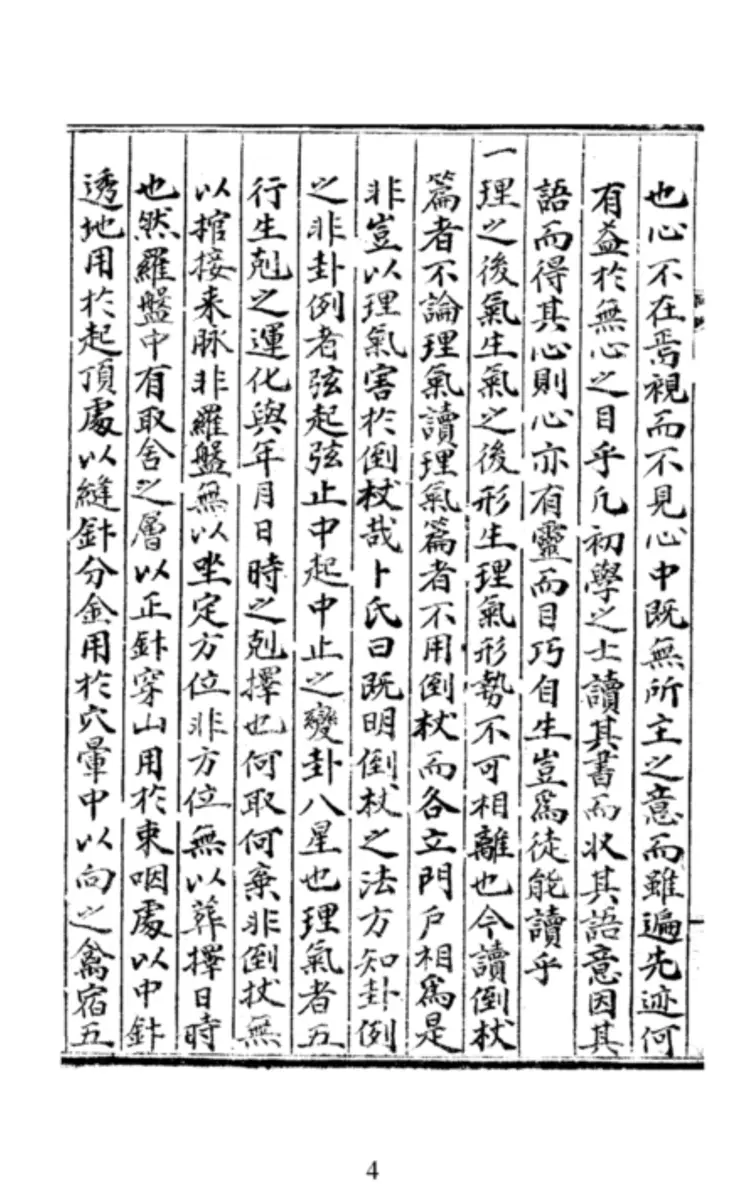 也心不在焉視而不見心中既無所主之意而雖遍先迹何
有益於無心之目乎凡初學之士讀其書而収其語意因其
語而得其心則心亦有靈而目巧自生豈爲徒能讀乎
一理之後氣生氣之後形生理氣形勢不可相離也今讀倒杖
篇者不論理氣讀理氣篇者不用倒杖而各立門戶相爲是
非豈以理氣害於倒杖哉卜氏曰既明倒杖之法方知卦例
之非卦例者弦起弦止中起中止之變卦八星也理氣者五
行生剋之運化與年月日時之剋擇也何取何棄非倒杖無
以棺接来脉非羅盤無以坐定方位非方位無以葬擇日時
也然羅盤中有取舍之層以正針穿山用於束咽處以中針
透地用於起頂處以縫針分金用於穴暈中以向之禽宿五
4